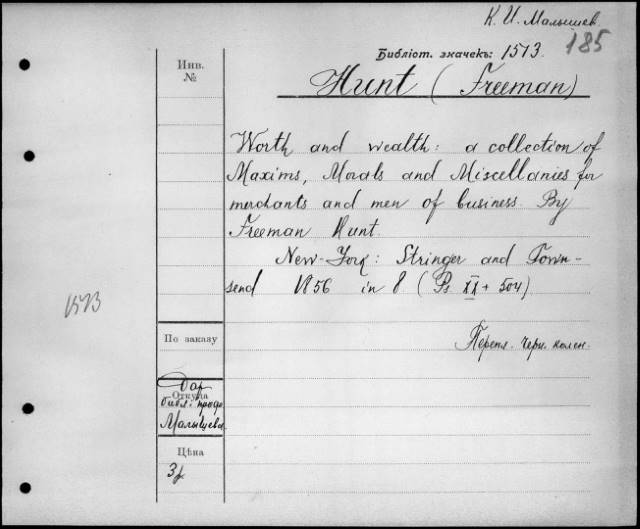 К. И. Малышев.
185
Библіот. значекъ: 1513.
Инв.
№
Hunt (Freeman)
Worth and wealth: a collection of
Maxims, Morals and Miscellanies for
merchants and men of business. By
Freeman Hunt.
New-York: Stringer and Town-
send 1856 in 8 (Ps XX + 504)
1513
По заказу
Перепл. черн. колен.
Дар
Откуда
библ: проф.
Малышева
Цѣна
3р